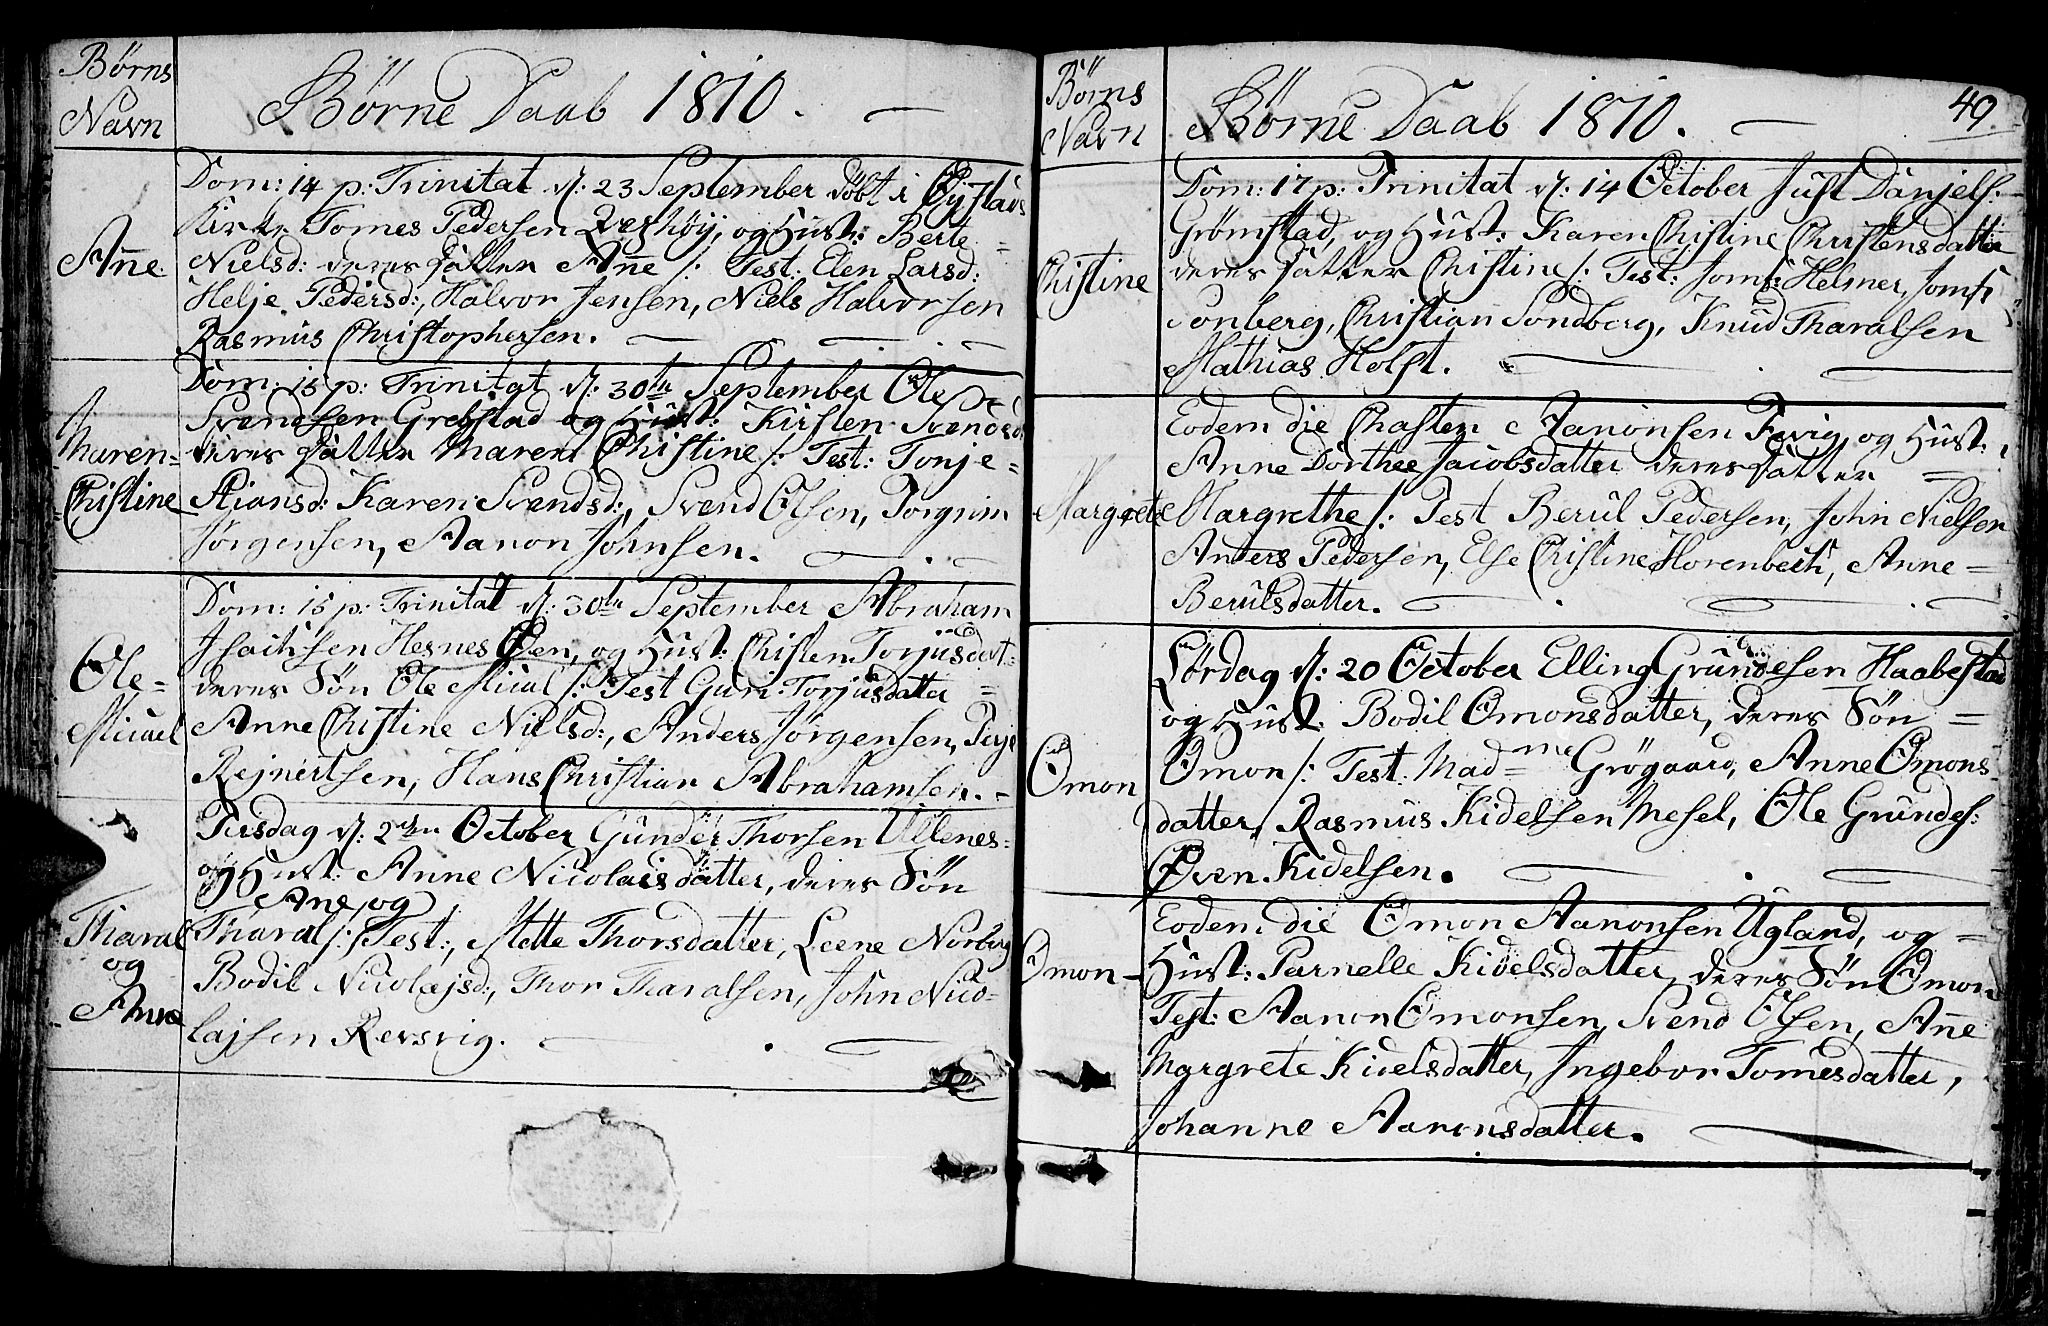 Børns
Navn
Børne Daab 1810.
Anne
Dom: 14 p: Trinitat d: 23 September döbt i Øjestads
Kirke Tomes Pedersen og Hust: Berte
Nielsd: deres Datter Anne /: Test: Elen Larsd:
Helje Pedersd:, Halvor Jensen, Niels Halvorsen
Rasmus Christophersen.
Maren
Christine
Dom: 15 p: Trinitat d: 30te September Ole
Svendsen Grebstad og Hust: Kirsten Svendsd
deres Datter Maren Christine /: Test: Tonje
Stiansd: Karen Svendsd:, Svend Olsen, Torgrim
Jørgensen, Aanon Johnsen.
Ole
Micael
Dom: 15 p: Trinitat d: 30te September Abraham
Isachsen Hesnes Øen, og Hust: Christen Torjusdatt:
deres Sön Ole Micael /: Test Guri Torjusdatter
Anne Christine Nielsd:, Anders Jørgensen, Terje
Rejnertsen, Hans Christian Abrahamsen.
Tharal
og
Anne
Tirsdag d: 2den October Gunder Thorsen Ullenes
og Hust: Anne Nicolaisdatter, deres Sön
Ane, og
Tharal /: Test:, Mette Thorsdatter, Leene Norberg
Bodil Nicolajsd:, Thor Tharalsen, John Nico-
lajsen Revsvig.
Børns
Navn
Børne Daab 1810.
49.
Christine
Dom: 17 p: Trinitat d: 14 October Just Danjels:
Grømstad, og Hust: Karen Christine Christensdatter
deres Datter Christine /: Test: Jomf: Helmer, Jomf:
Sonberg, Christian Sondberg, Knud Tharalsen
Mathias Holst.
Margrete
Eodem die Chasten Aanonsen Fevig, og Hust:
Anne Dorthee Jacobsdatter deres Datter
Margrethe /: Test Berul Pedersen, John Nielsen
Anders Pedersen, Else Christine Horenbech, Anne
Berulsdatter.
Omon
Lørdag d: 20 October Elling Grundesen Haabestad
og Hust: Bodil Omonsdatter, deres Sön
Omon /: Test: Madme Grøgaard, Anne Omons
datter, Rasmus Kidelsen Mesel, Ole Grundes:
Oven Kidelsen.
Omon
Eodem die Omon Aanonsen Ugland, og
Hust: Pernelle Kidelsdatter, deres Sön Omon
Test: Aanon Omonsen, Svend Olsen, Anne
Margrete Kidelsdatter, Ingebor Tomesdatter,
Johanne Aanonsdatter.